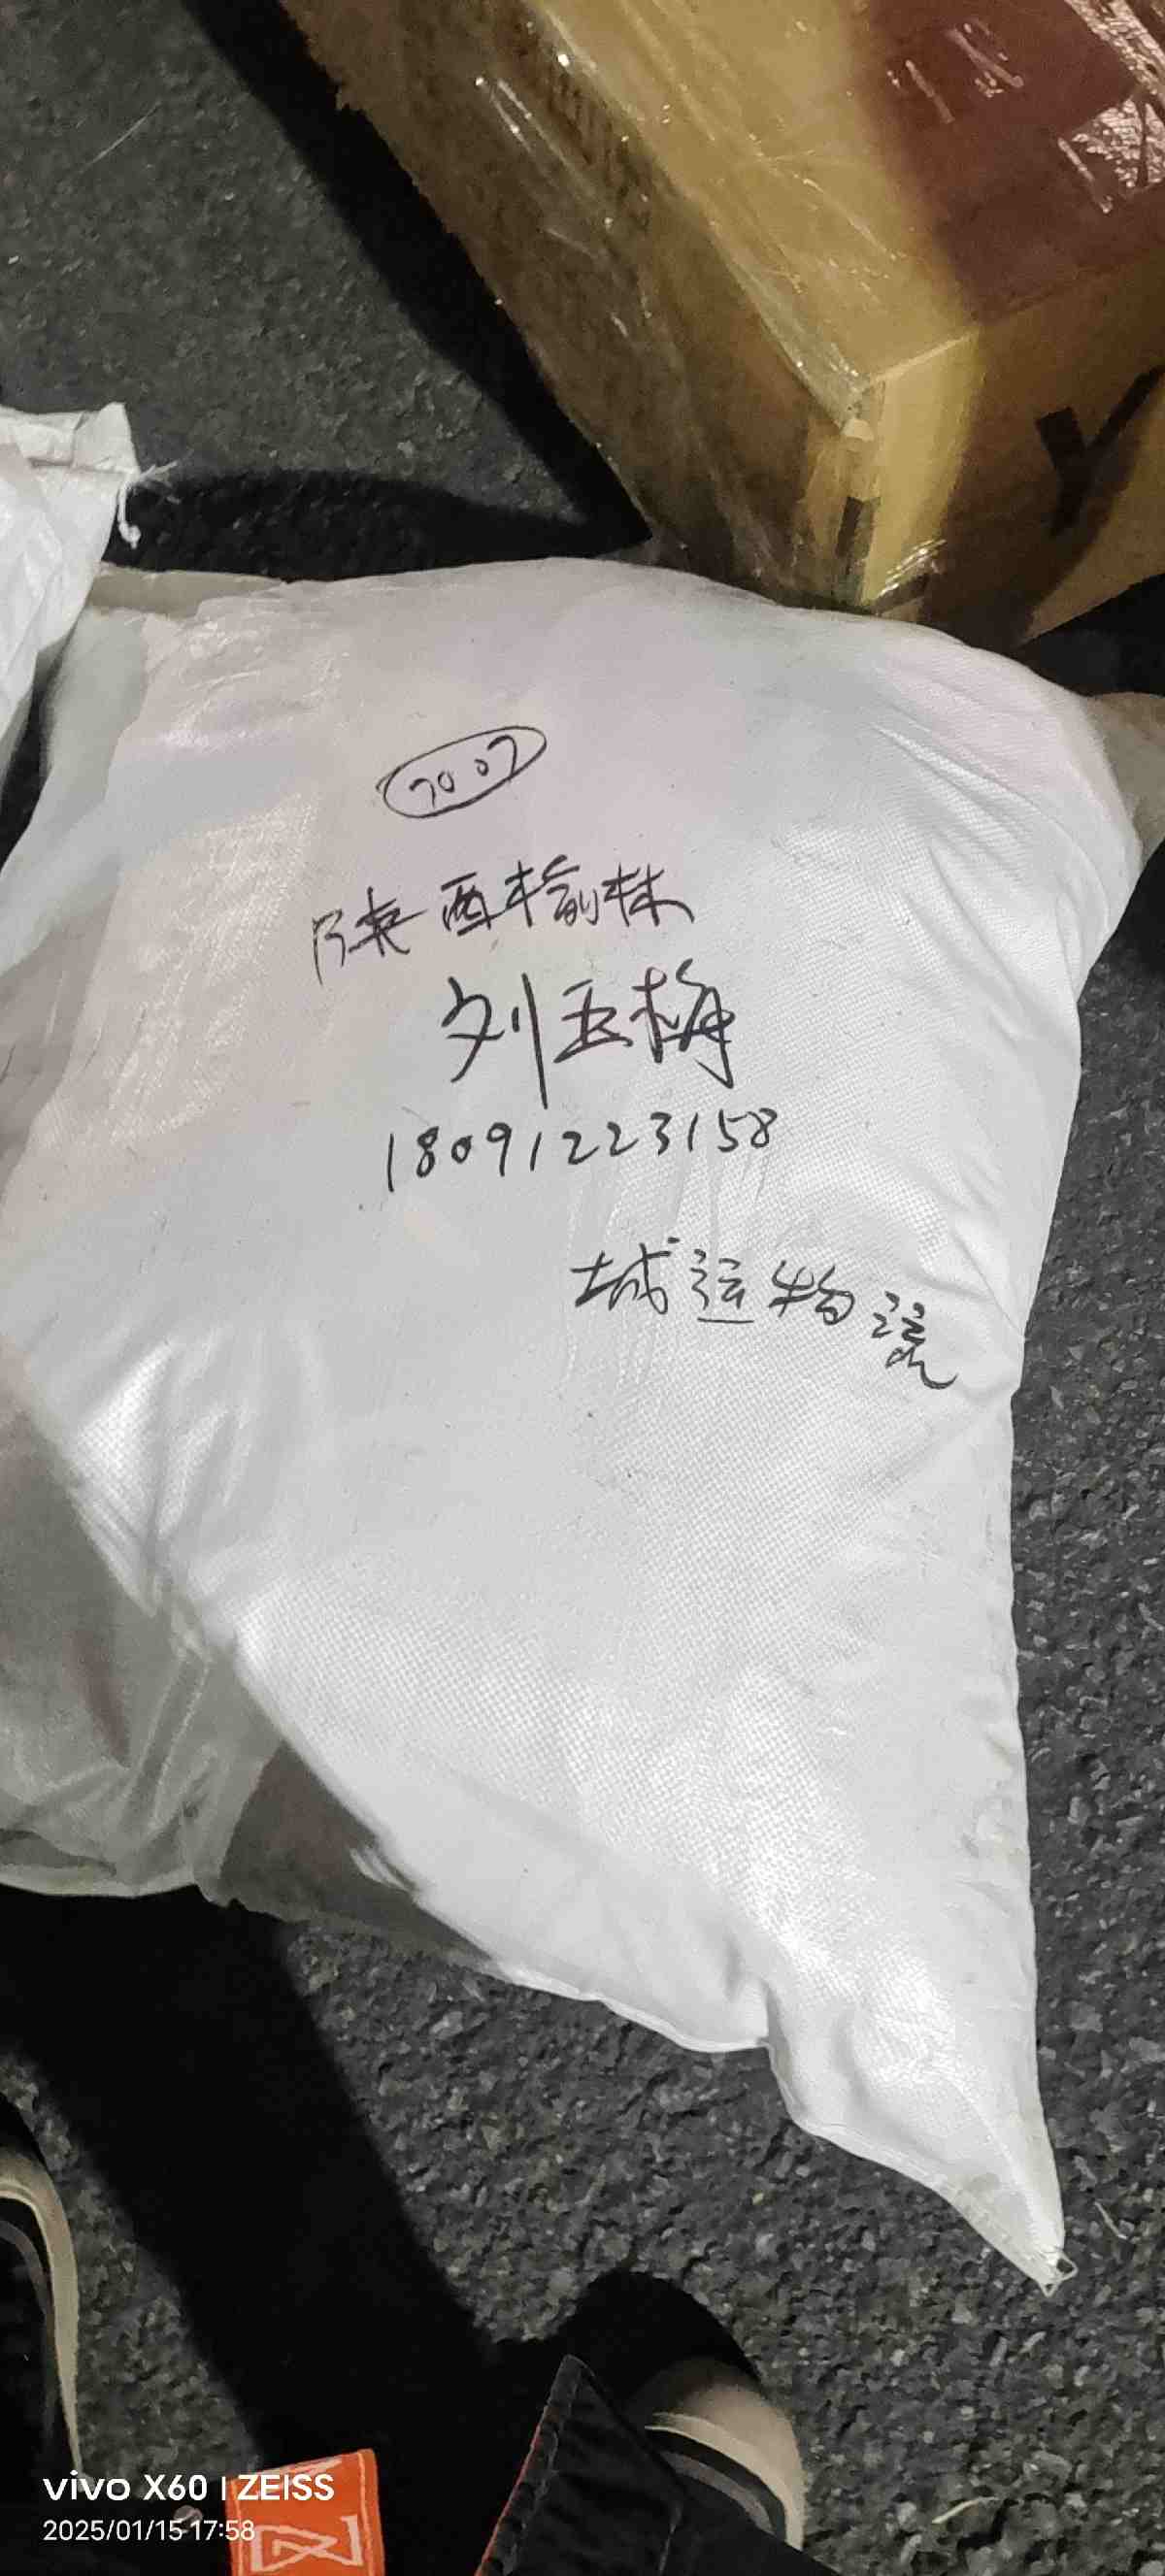 7007
陕西榆林
刘玉梅
18091223158
城运物流
vivo X60 | ZEISS
2025/01/15 17:58